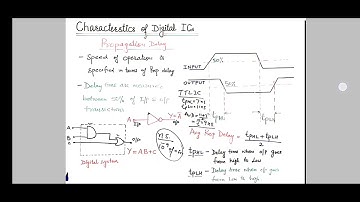 Characteristics of Digital ICs
Propagation Delay
- Speed of operation is
specified in terms of Prop delay
- Delay times are measured
between 50% of I/P & O/P
transitions
INPUT
50%
OUTPUT
50%
TTL IC
tPHL
tPLH
A
B
C
O/P
Digital System
Y = AB + C
A
I/P
Y = A̅
O/P
Avg Prop Delay = tPHL + tPLH
2
tPHL - Delay time when o/p goes
from high to low
tPLH - Delay time when o/p goes
from low to high